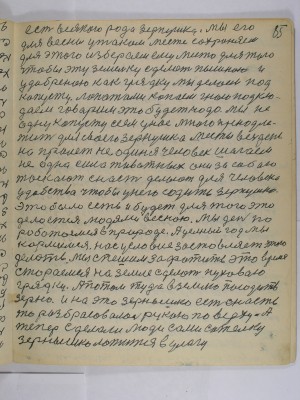 85
есть всякого рода зернушка, мы его
для весны у таком месте сохраняем
для этого избераем ему место для того
чтобы эту земельку сделать пышною и
удобряною как грядку мы делаем под
капусту, лопатами копаем гною подкла-
даем говорим это будит тогда мы не
одну капусту сеем у нас много приходи-
для своего зернушка место везде
не пройдет не один человек шагаем
не одна сила животных они за собою
таскают снасть делают для человека
удобства чтобы у него содить зернушко
Это было есть и будет для того это
делается людями весною. Мы ден по
работаемся в природе. А целый год мы
кормимся, нас условие заставляет это
делать. Мы спешим захватить это время
стараемся на земле сделать пуховаю
грядку. А потом туда в землю посодить
зерно. и на это зернышко есть снасть
то разбрасовалось рукою по верху. А
тепер сделали люди сами сеялку
зернышко ложится в улогу